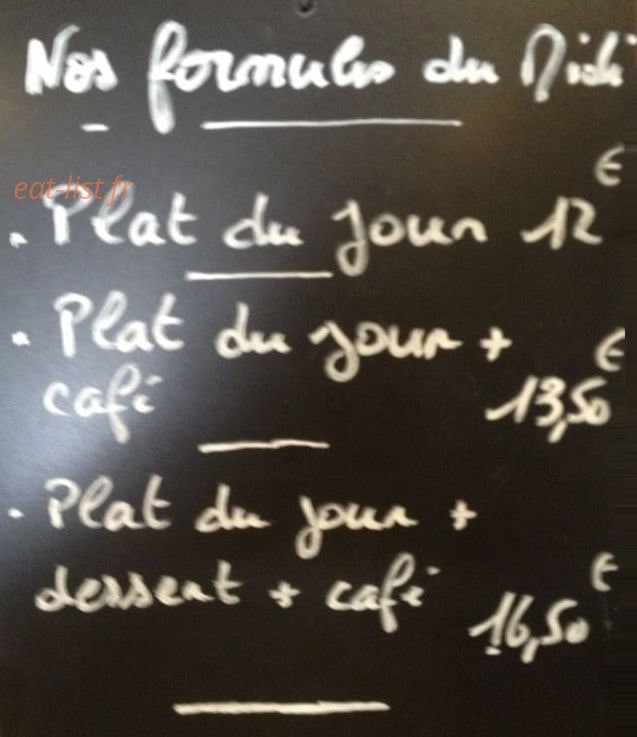 Nos formules du Midi
eat-list.fr
. Plat du jour 12 €
. Plat du jour +
café 13,50 €
. Plat du jour +
dessert + café 16,50 €